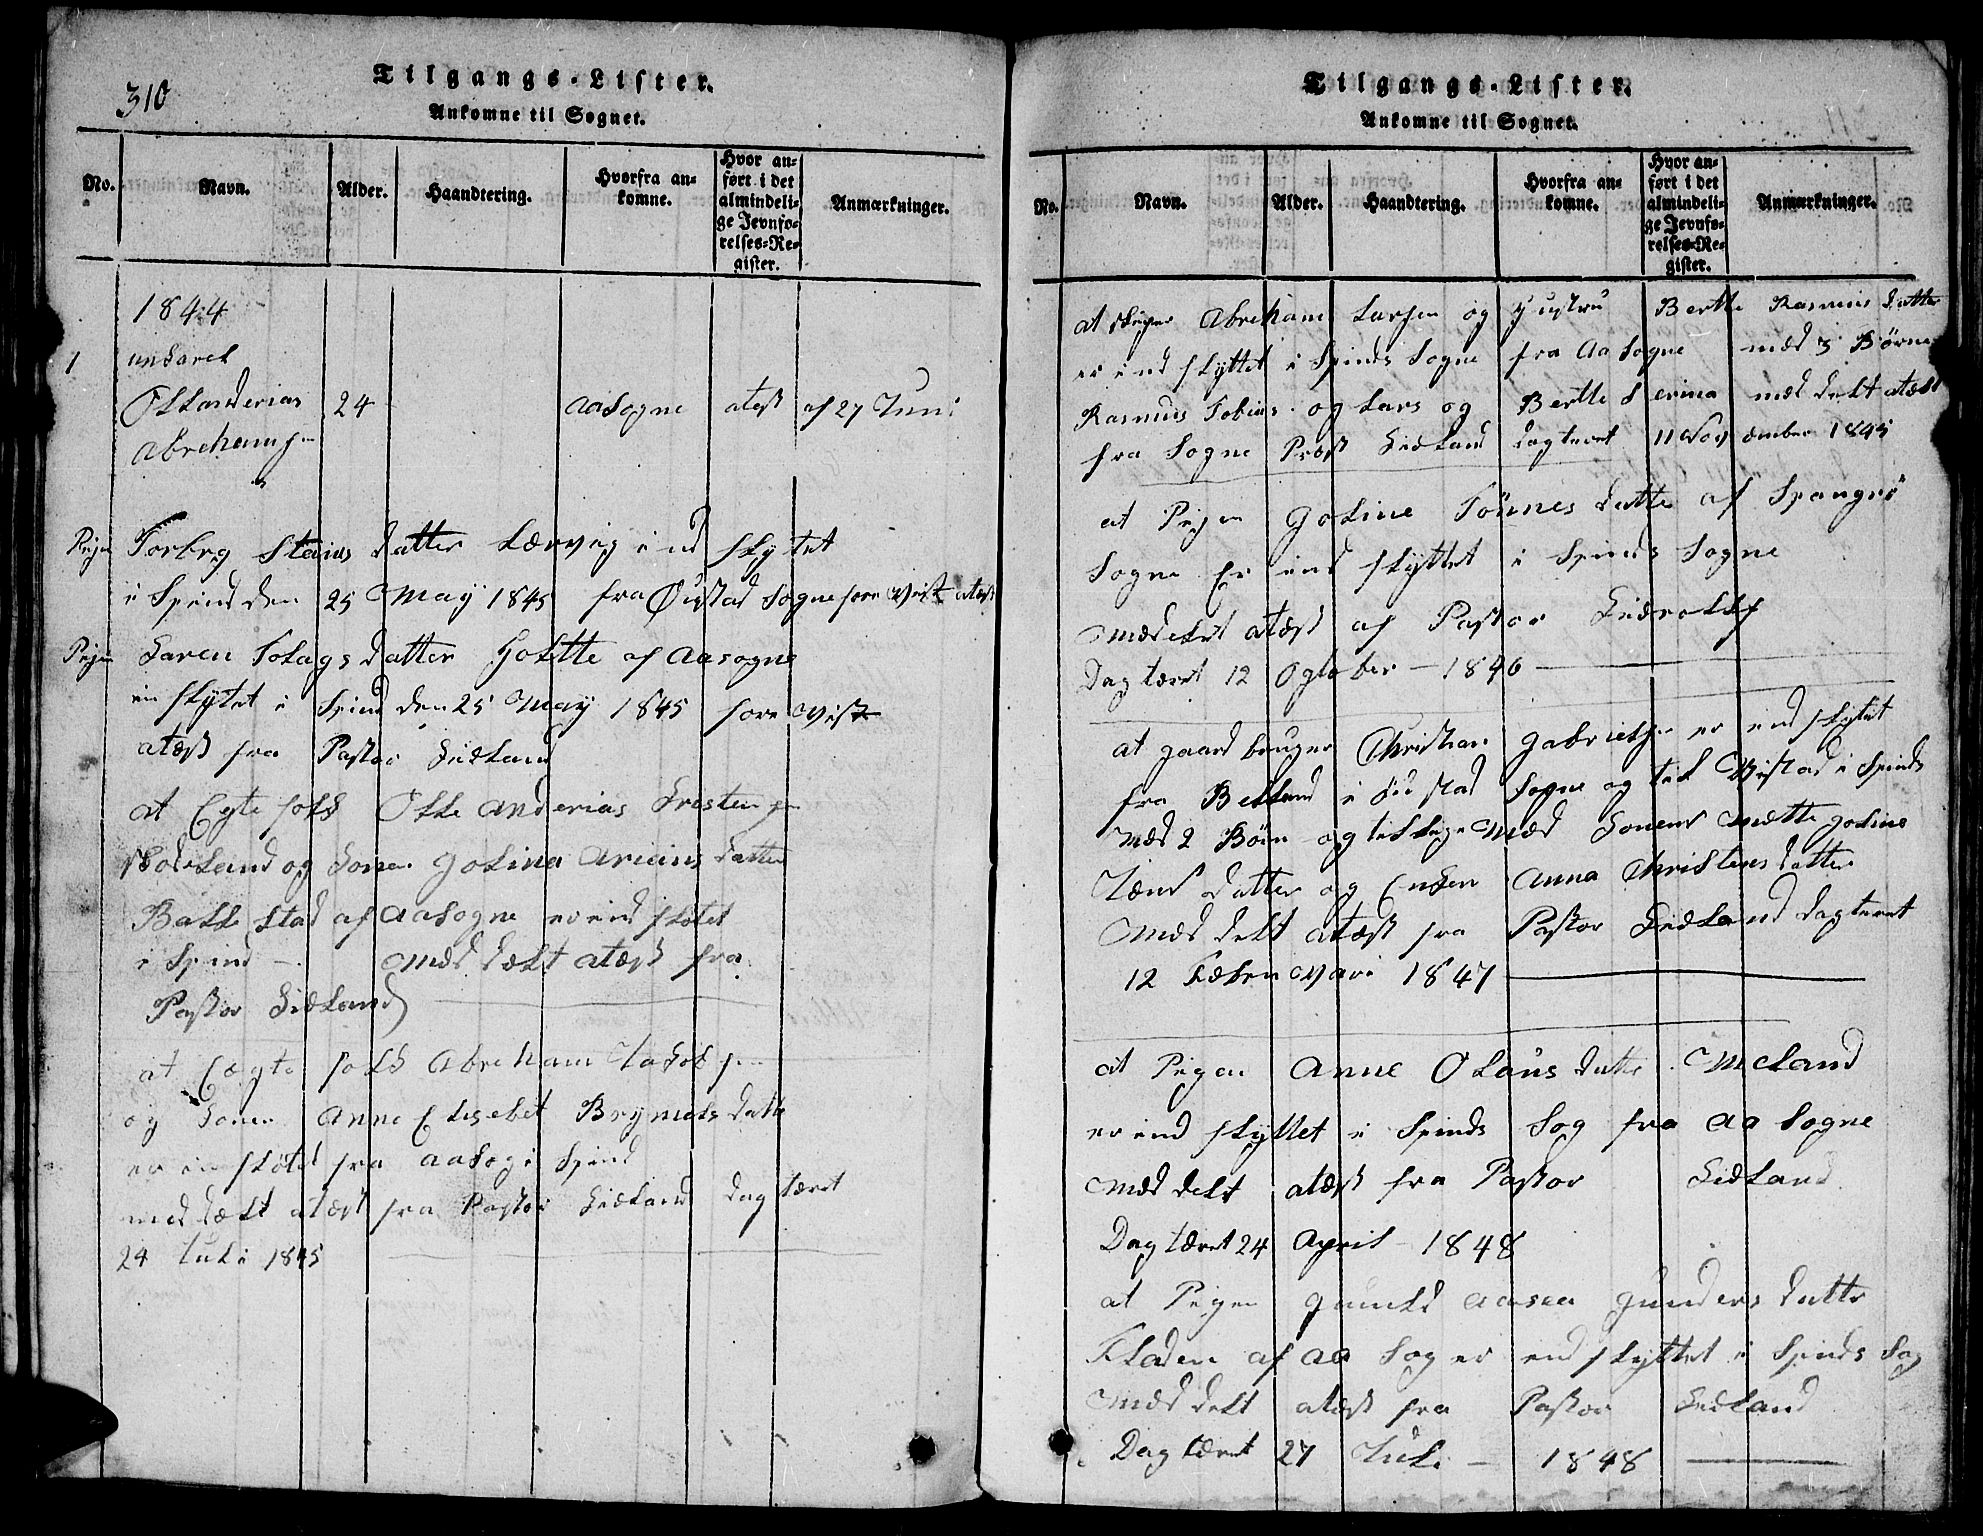 310
Tilgangs-Lister.
Ankomne til Sognet.
No. Navn. Alder. Haandtering. Hvorfra ankomne. Hvor anført i det almindelige Jevnførelses-Register. Anmærkninger.
1844
1 unkarel
Ollanderias 24 aasogne atest af 27 Juni
Abrehamsen
Pigen Torbrg Stains datter Lervig ind flytet
i Spind den 25 May 1845 fra Øustad Sogne fore vist atest
Pigen Karen Tolags datter Holtte af aasogne
in flytet i Spind den 25 May 1845 fore vist
atæst fra Pastor Lidland
at Egte folk Olle anderias Kresten sen
og konen golina datter
Bakk stad af aasogne er ind fløtet
i Spind - med delt atæst fra
Pastor Lidland
at Ægte folk Abreham Jakob sen
og konen Anne Elisebet Brynels datte
er in fløtet fra aasog i Spind
med delt atæst fra Pastor Lidland dag tæret
24 Juli 1845
Tilgangs-Lister.
Ankomne til Sognet.
No. Navn. Alder. Haandtering. Hvorfra ankomne. Hvor anført i det almindelige Jevnførelses-Register. Anmærkninger.
at Abreham Larsen og Hustru Berthe Rasmus datter
er ind flyttet i Spinds Sogne fra Aa Sogne med 3 Børne
Rasmus Tobias og Lars og Bertte Serina med delt atæst
fra Sogne Præst Lidland dagteret 11 November 1845
at Pigen Goline Tönnes datte af
Sogne Er ind flyttet i Spinds Sogne
med delt atæst af Pastor
Dag tæret 12 Ogtober - 1846
at gaard bruger Christian gabrielsen er ind flytet
fra Belland i Sogne og tel i Spinds
med 2 Börn og med konens Mette goline
datter og Enken Anna Christens datter
med delt atæst fra Pastor Lidland dagteret
12 Febru vari 1847
at Pigen Anne Olaus datte Meland
er ind flyttet i Spinds Sog fra aa Sogne
med delt atæst fra Pastor Lidland
Dag tæret 24 April - 1848
at Pigen aasea Gunders datte
Fladen af aa Sog er ind flyttet i Spinds Sog
med delt atæst fra Pastor Lidland
Dag tæret 27 Juli - 1848